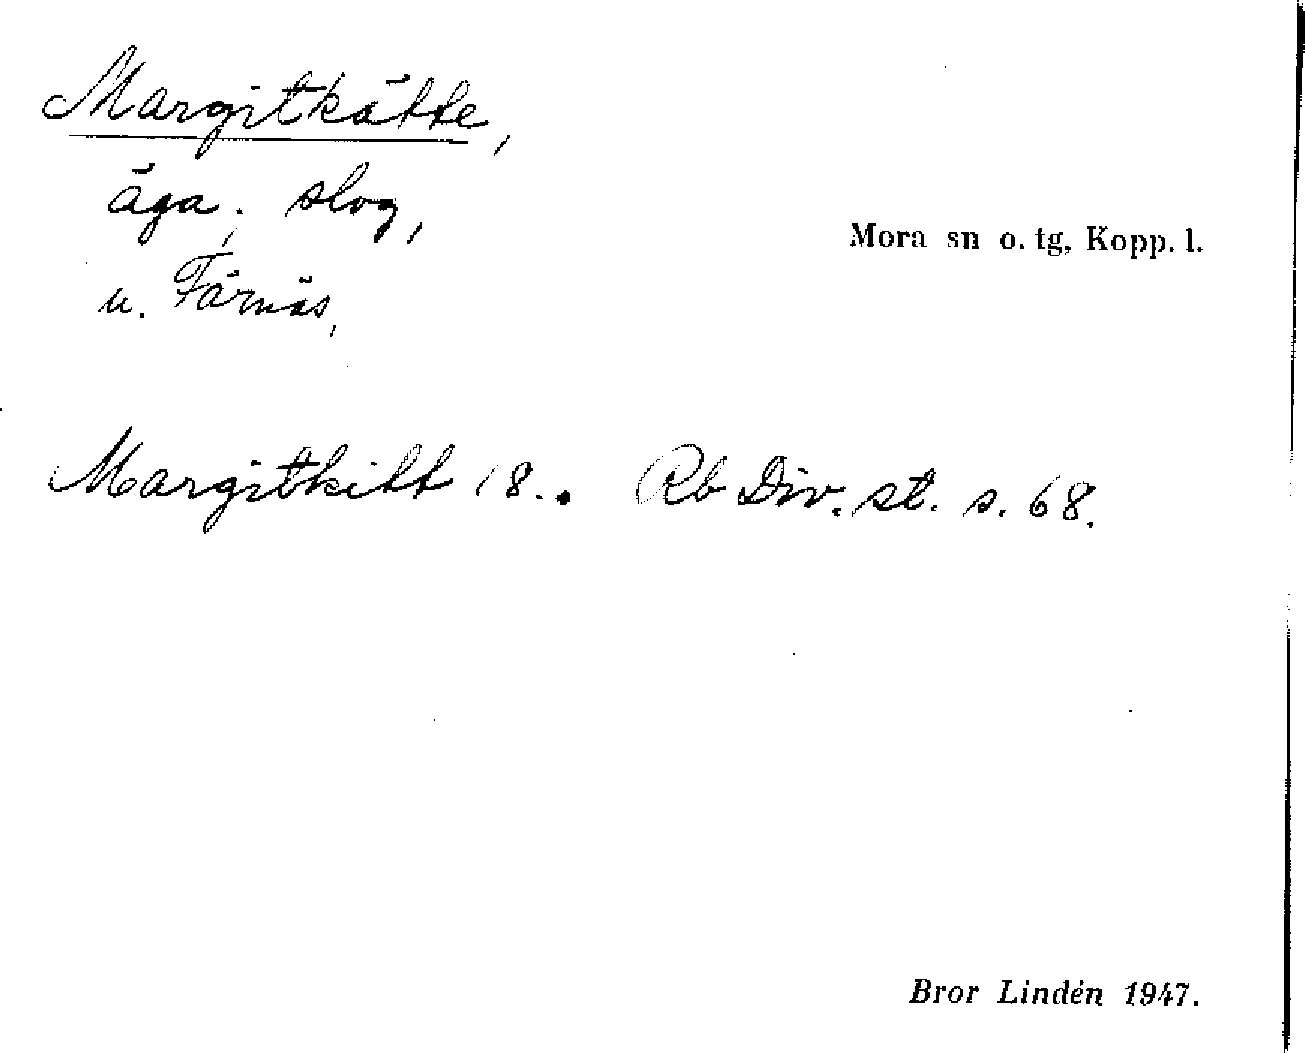 Margitkätte,
äga; slog,
Mora sn o. tg, Kopp. l.
u. Färnäs,
Margitkitt 18.. Rb Div. st. s. 68.
Bror Lindén 1947.